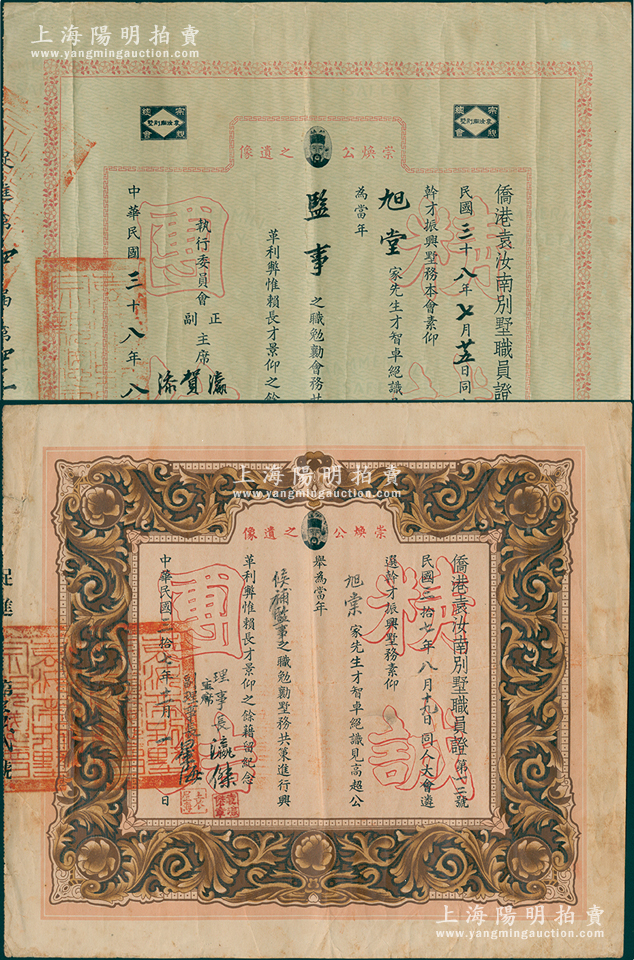 上海陽明拍賣
www.yangmingauction.com
上海陽明拍賣
www.yangmingauction.com
崇煥公之遺像
僑港袁汝南別墅職員證
民國三十八年七月廿五日同
幹才振興墅務本會素仰
旭堂家先生才智卓絕識見
為當年
監事之職勉勷會務共
革利弊惟賴長才景仰之餘
執行委員會正副主席
瀛
賀
添
中華民國三十八年八
促進第四屆第
精誠團
上海陽明拍賣
www.yangmingauction.com
崇煥公之遺像
僑港袁汝南別墅職員證第廿二號
民國三拾七年八月十九日同人大會遴
選幹才振興墅務素仰
旭棠家先生才智卓絕識見高超公
舉為當年
候補監事之職勉勷墅務共策進行興
革利弊惟賴長才景仰之餘藉留紀念
理事長瀛傑
監席
中華民國三拾七年十一月一日
促進
精誠團
上海陽明拍賣
www.yangmingauction.com